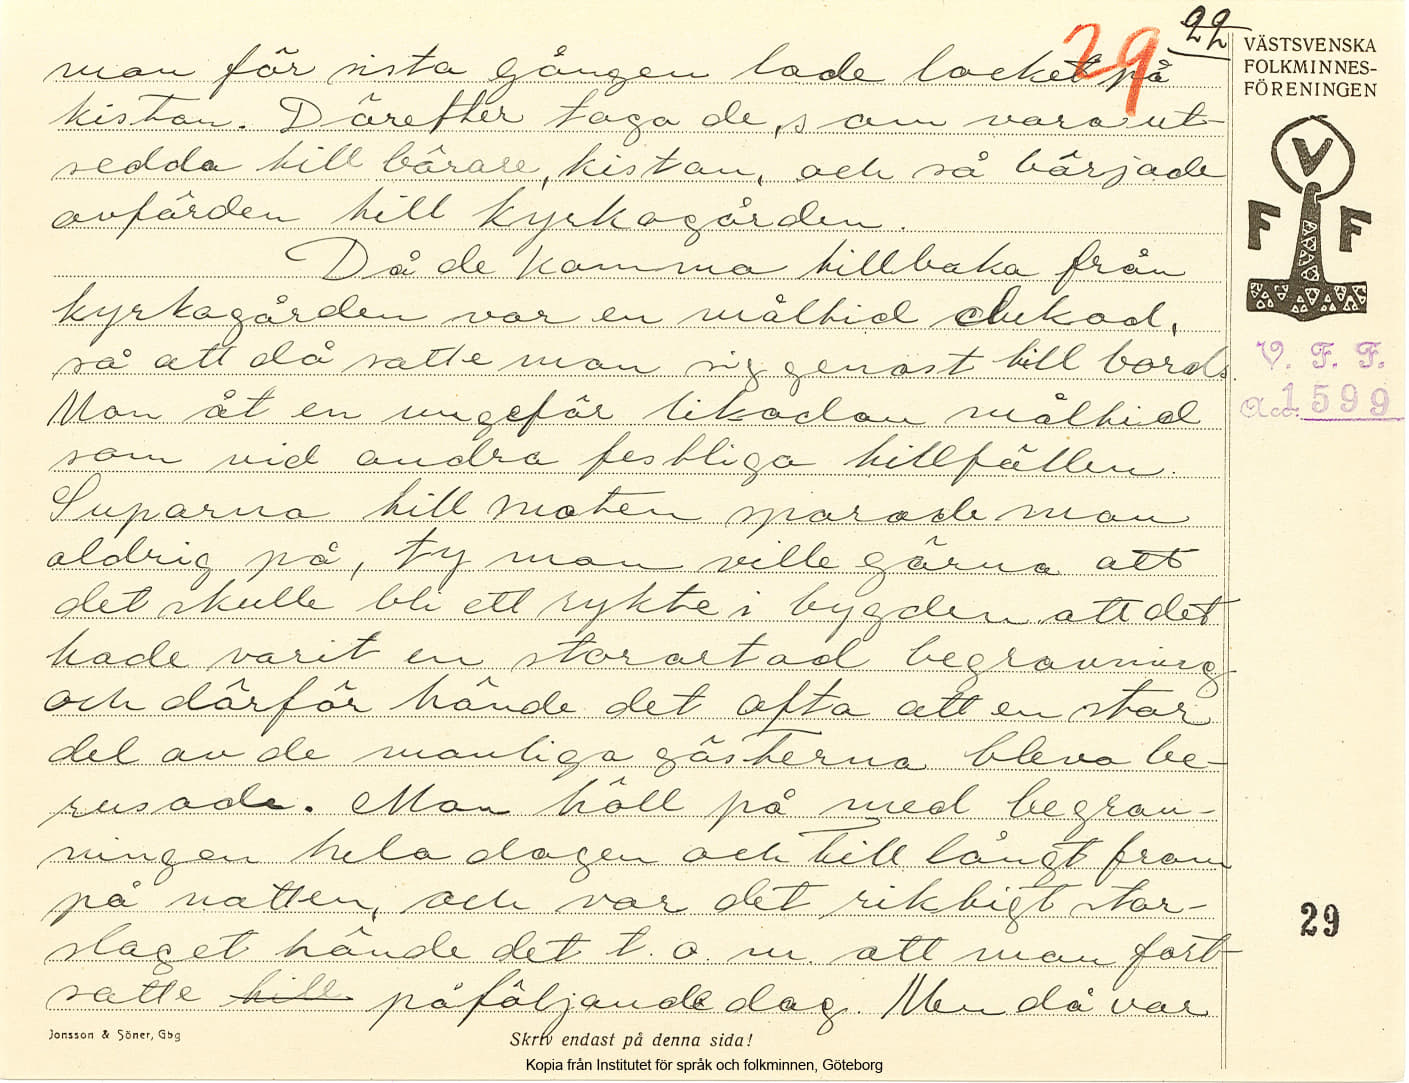 22
29
man för sista gången lade locket på
kistan. Därefter togo de, som voro ut-
sedda till bärare, kistan, och så började
avfärden till kyrkogården.
Då de kommo tillbaka från
kyrkogården var en måltid dukad,
så att då satte man sig genast till bords.
Man åt en ungefär likadan måltid
som vid andra festliga tillfällen.
Suparna till maten sparade man
aldrig på, ty man ville gärna att
det skulle bli ett rykte i bygden att det
hade varit en storartad begravning
och därför hände det ofta att en stor
del av de manliga gästerna blevo be-
rusade. Man höll på med begrav-
ningen hela dagen och till långt fram
på natten, och var det riktigt stor-
slaget hände det t. o. m. att man fort-
satte till påföljande dag. Men då var
VÄSTSVENSKA
FOLKMINNES-
FÖRENINGEN
V
F F
V. F. F.
Acc. 1599
29
Jonsson & Söner, Gbg
Skriv endast på denna sida!
Kopia från Institutet för språk och folkminnen, Göteborg